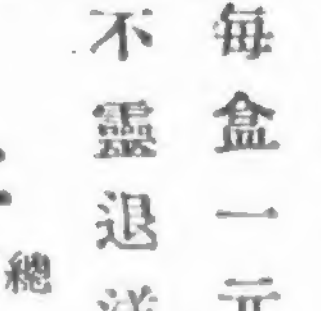 每盒一元
不靈退洋
總